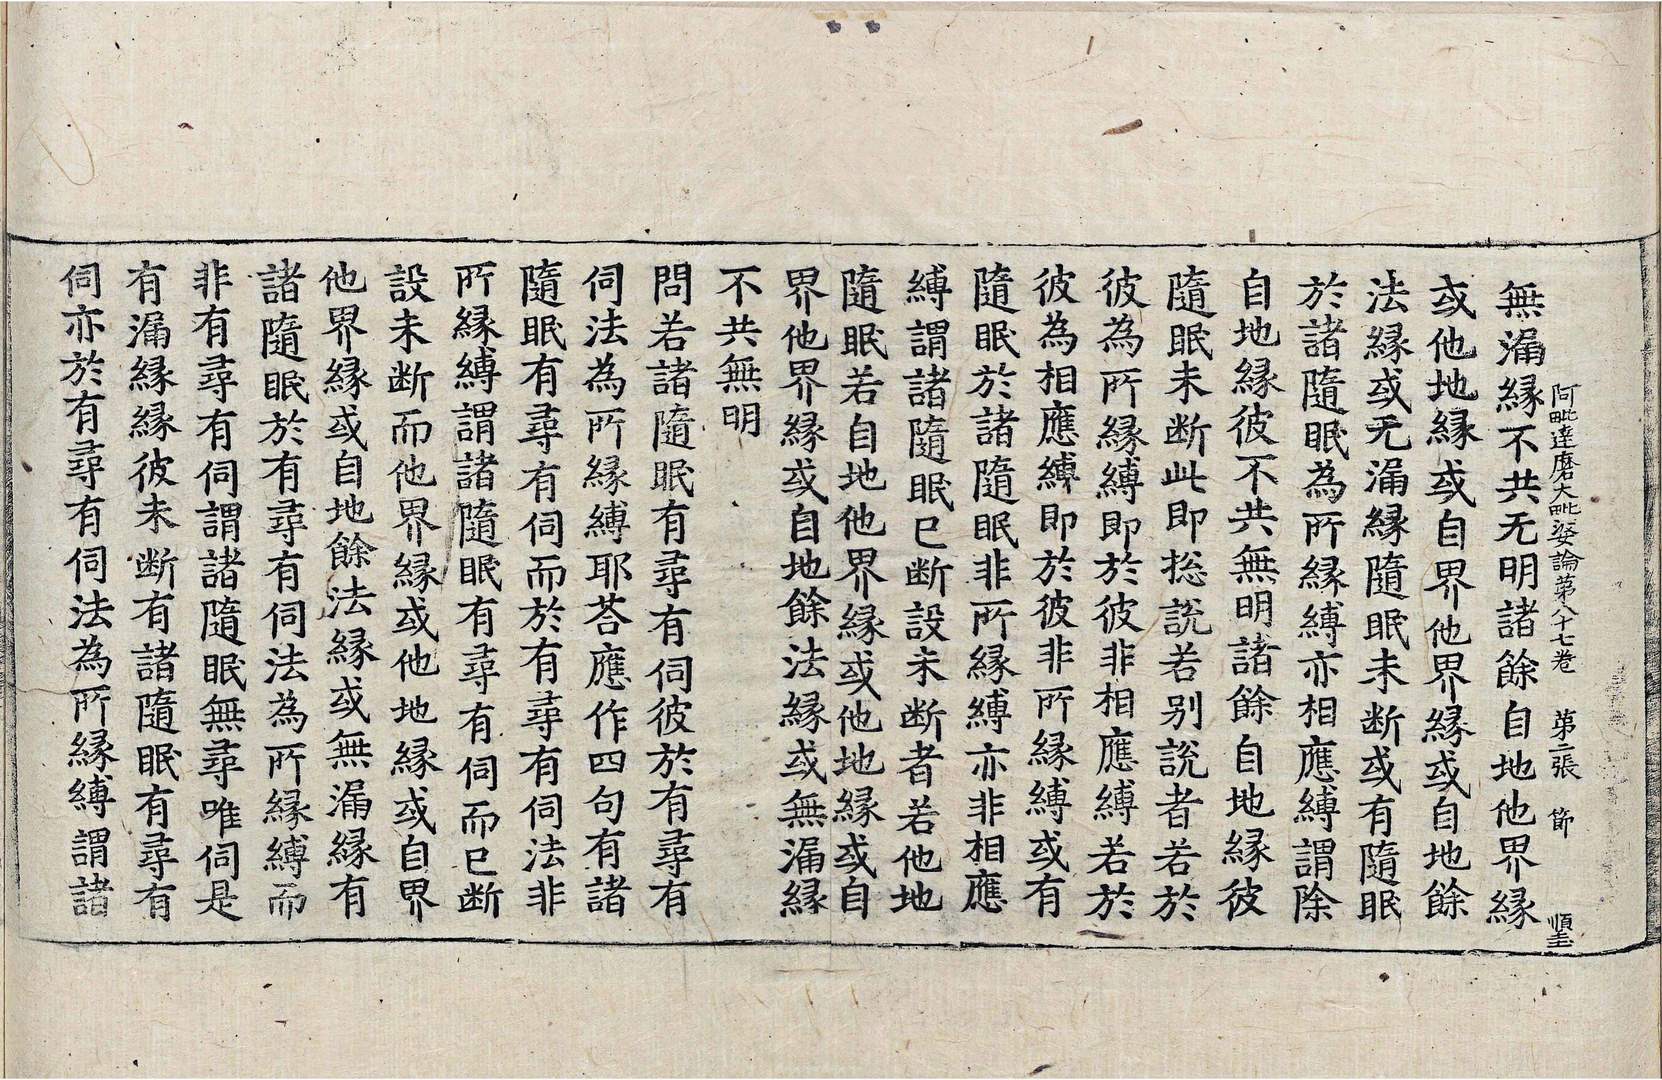 阿毗達磨大毗婆論第八十七卷 第二張 節 順圭
無漏縁不共无明諸餘自地他界縁
或他地縁或自界他界縁或自地餘
法縁或无漏縁隨眠未断或有隨眠
於諸隨眠為所縁縛亦相應縛謂除
自地縁彼不共無明諸餘自地縁彼
隨眠未断此即捴說若别說者若於
彼為所縁縛即於彼非相應縛若於
彼為相應縛即於彼非所縁縛或有
隨眠於諸隨眠非所縁縛亦非相應
縛謂諸隨眠已断設未断者若他地
隨眠若自地他界縁或他地縁或自
界他界縁或自地餘法縁或無漏縁
不共無明
問若諸隨眠有尋有伺彼於有尋有
伺法為所縁縛耶荅應作四句有諸
隨眠有尋有伺而於有尋有伺法非
所縁縛謂諸隨眠有尋有伺而已断
設未断而他界縁或他地縁或自界
他界縁或自地餘法縁或無漏縁有
諸隨眠於有尋有伺法為所縁縛而
非有尋有伺謂諸隨眠無尋唯伺是
有漏縁縁彼未断有諸隨眠有尋有
伺亦於有尋有伺法為所縁縛謂諸